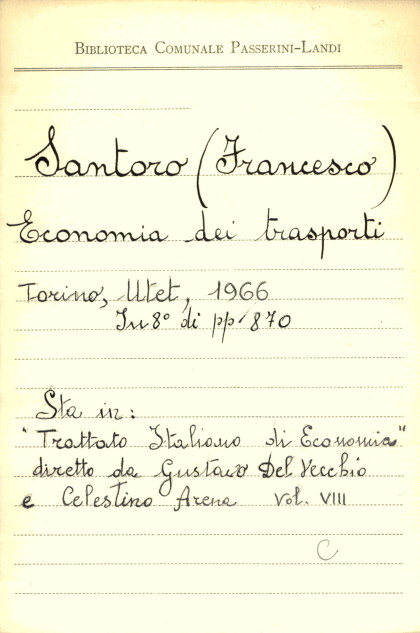 BIBLIOTECA COMUNALE PASSERINI-LANDI
Santoro (Francesco)
Economia dei trasporti
Torino, Utet, 1966
In 8° di pp. 870
Sta in:
"Trattato Italiano di Economia"
diretto da Gustavo Del Vecchio
e Celestino Arena Vol. VIII
C